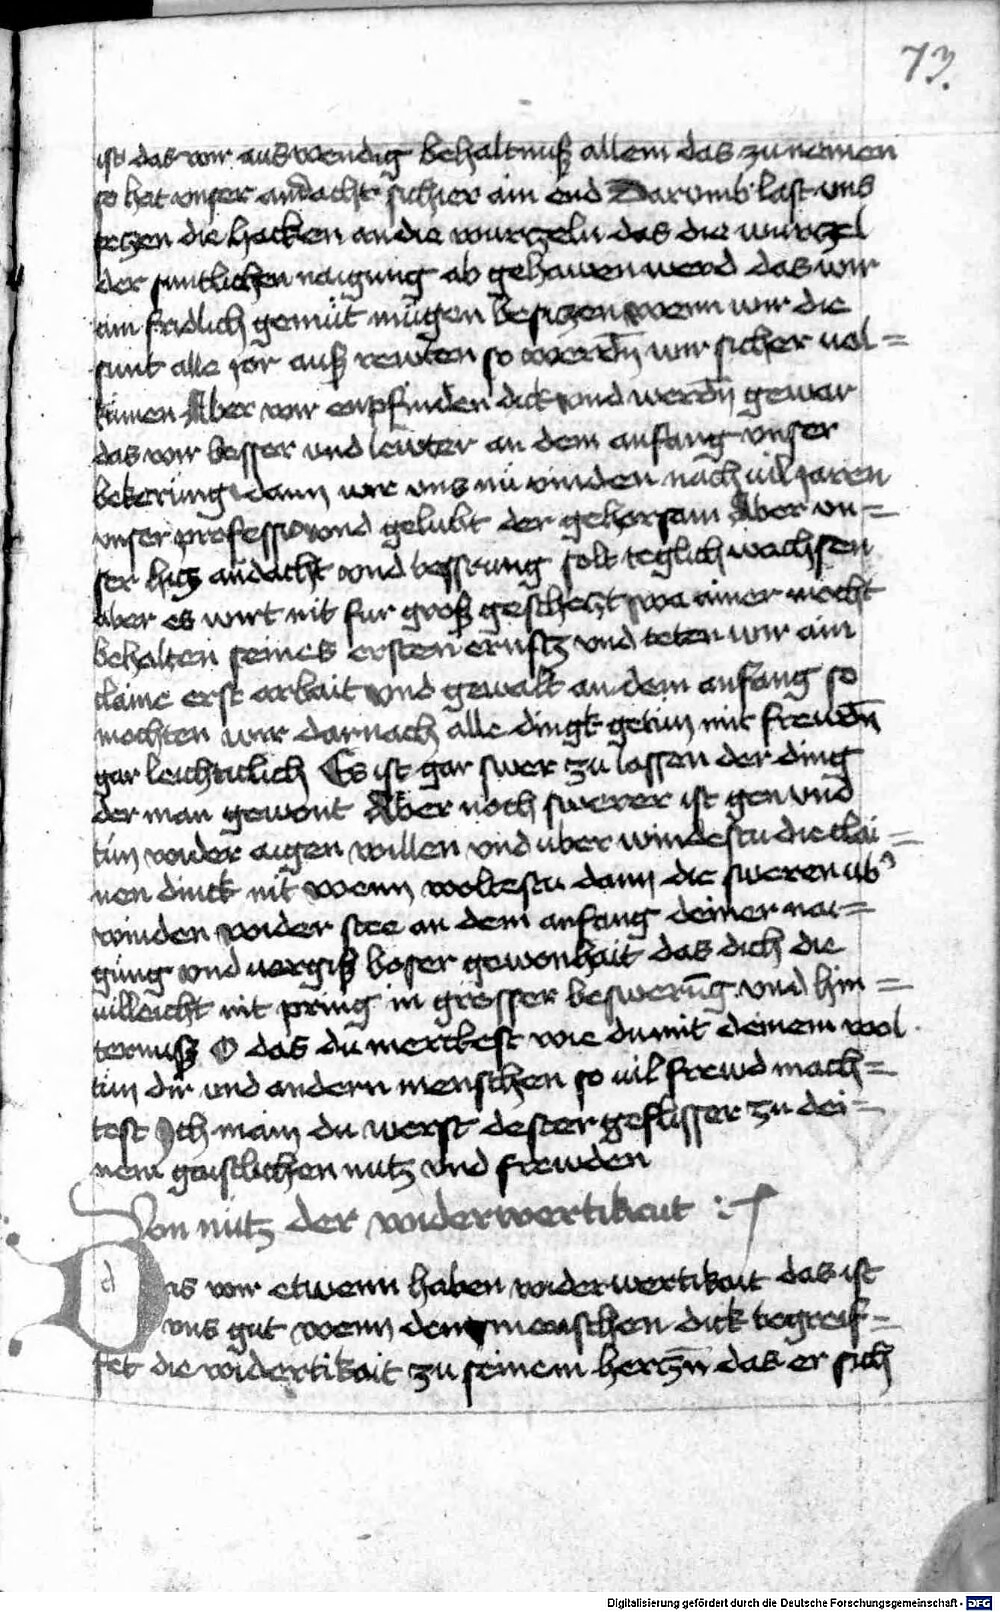 73.
ist das wir auswendig behaltnuß allein das zunemen
so hat unser andacht sichier ain end Darumb last uns
seczen die hacken an die wurczeln das die wurczel
der suntlichen naigung ab gehawen werd das wir
ain fridlich gemüt mügen besiczen wenn wir die
sunt alle jor auß rewten so werdn̄ wir sicher vol=
kumen Aber wir enpfinden dick und werdn̄ gewar
das wir besser und lewter an dem anfang unser
bekerung dann wir uns nu vinden nach vil jaren
unser professio und gelubt der gehorsam Aber un=
ser hicz andacht und bessrung solt teglich wachsen
aber es wirt nit fur groß gescheczt wa ainer mocht
behalten seines ersten ernstz und teten wir ain
claine erst arbait und gewalt an dem anfang so
mochten wir darnach alle dingk getun mit frewdn̄
gar leichticlich Es ist gar swer zu lassen der ding
der man gewont Aber noch swerer ist gen und
tun wider aigen willen und uber windestu die clai=
nen dinck nit wenn woltestu dann die sweren ub᾽
winden wider stee an dem anfang deiner nai=
gung und vergiß boser gewonhait das dich die
villeicht nit pring in grosser beswerūg und hin=
ternuß O das du mercktest wie du mit deinem wol
tun dir und andern menschen so vil frewd mach=
test Ich main du werst dester geflisser zu dei=
nem gaistlichen nutz und frewden
Von nutz der widerwertikait :
Das wir etwenn haben widerwertikait das ist
uns gut wenn dem menschen dick begreif=
fet die widertikait zu seinem herczn̄ das er sich
Digitalisierung gefördert durch die Deutsche Forschungsgemeinschaft - DFG